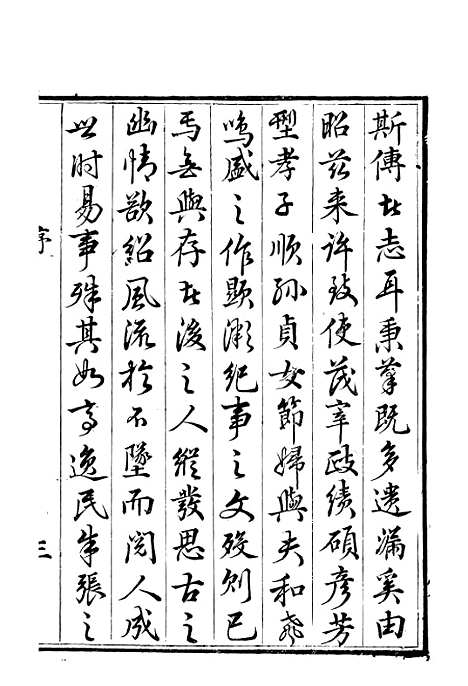 斯傳於志耳秉筆既多遺漏奚由
昭茲来許致使茂宰政績碩彦芳
型孝子順孫貞女節婦與夫和聲
鳴盛之作顯微紀事之文殁則已
焉無與存於後之人縱發思古之
幽情欲紹風流於不墜而閲人成
世时易事殊其如高逸民朱張之
序
三